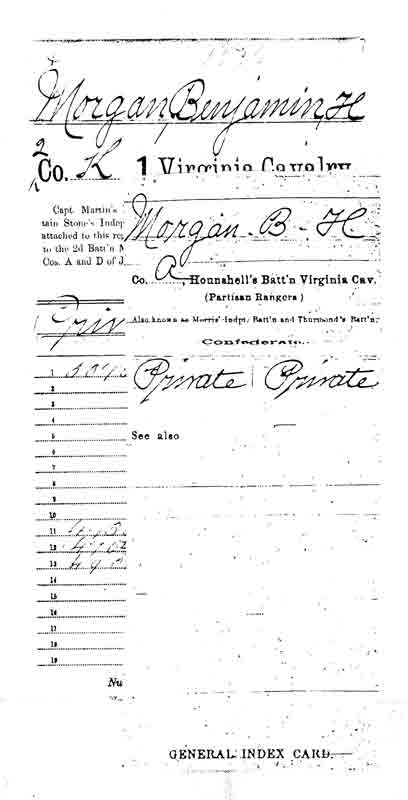 Morgan, Benjamin, H
2 Co. K 1 Virginia Cavalry.
Capt. Martin's
tain Stone's Indep
attached to this re
to the 2d Batt'n M
Cos. A and D of J
Morgan - B - H
Co. A, Hounshell's Batt'n Virginia Cav.
(Partisan Rangers)
Also known as Morris' Indpt. Batt'n and Thurmond's Batt'n.
Confederate.
Priv
Private | Private
See also
1
2
3
4
5
6
7
8
9
10
11
12
13
14
15
16
17
18
19
Nu
GENERAL INDEX CARD.